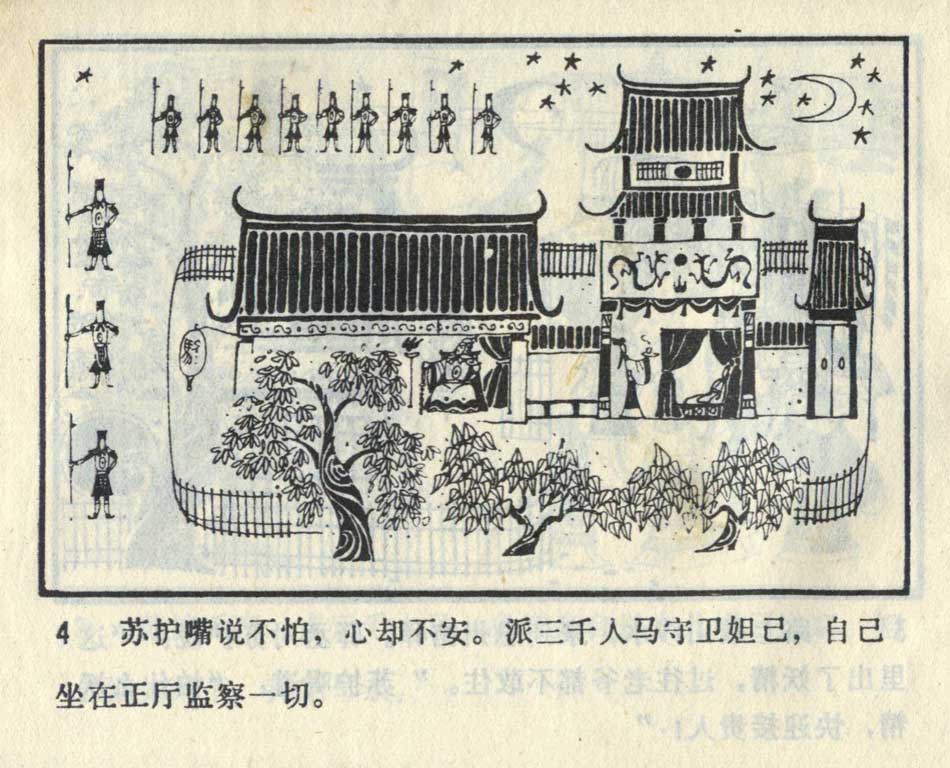 4 苏护嘴说不怕，心却不安。派三千人马守卫妲己，自己
坐在正厅监察一切。